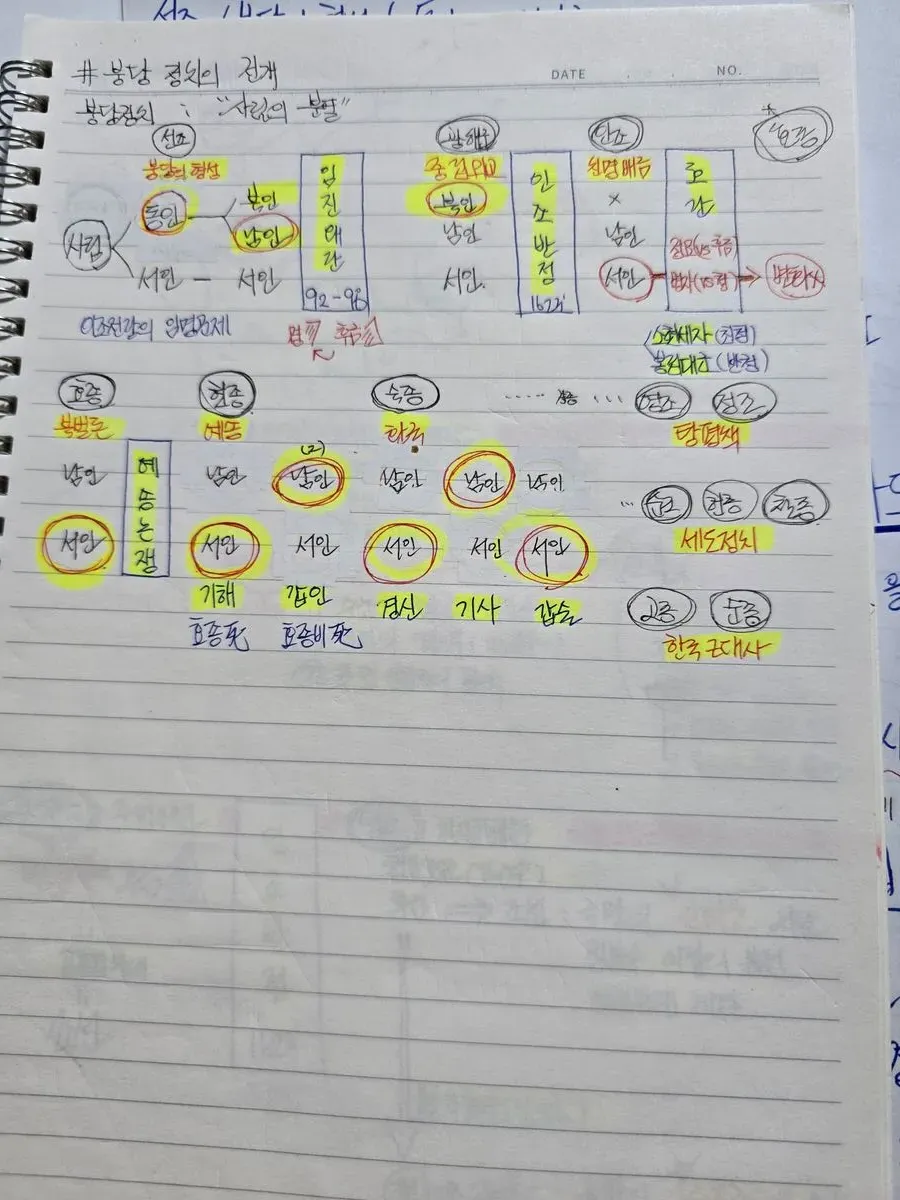 # 붕당 정치의 전개
DATE . . . NO.
붕당정치 : "사림의 분열"
선조 광해군 인조 효종
붕당의 형성 중립외교 친명배금
임진왜란 인조반정 호란
사림 동인 북인 북인 x
남인 남인 남인
서인 - 서인 서인 서인
92-98 1623
이조전랑의 임명문제
소현세자 (친청)
봉림대군 (반청)
효종 현종 숙종 ..... 경종 ... 영조 정조
북벌론 예송 환국 탕평책
예송논쟁
남인 남인 남인 남인 남인 남인
... 순조 헌종 철종
서인 서인 서인 서인 서인 서인
세도정치
기해 갑인 경신 기사 갑술
고종 순종
효종死 효종비死
한국근대사